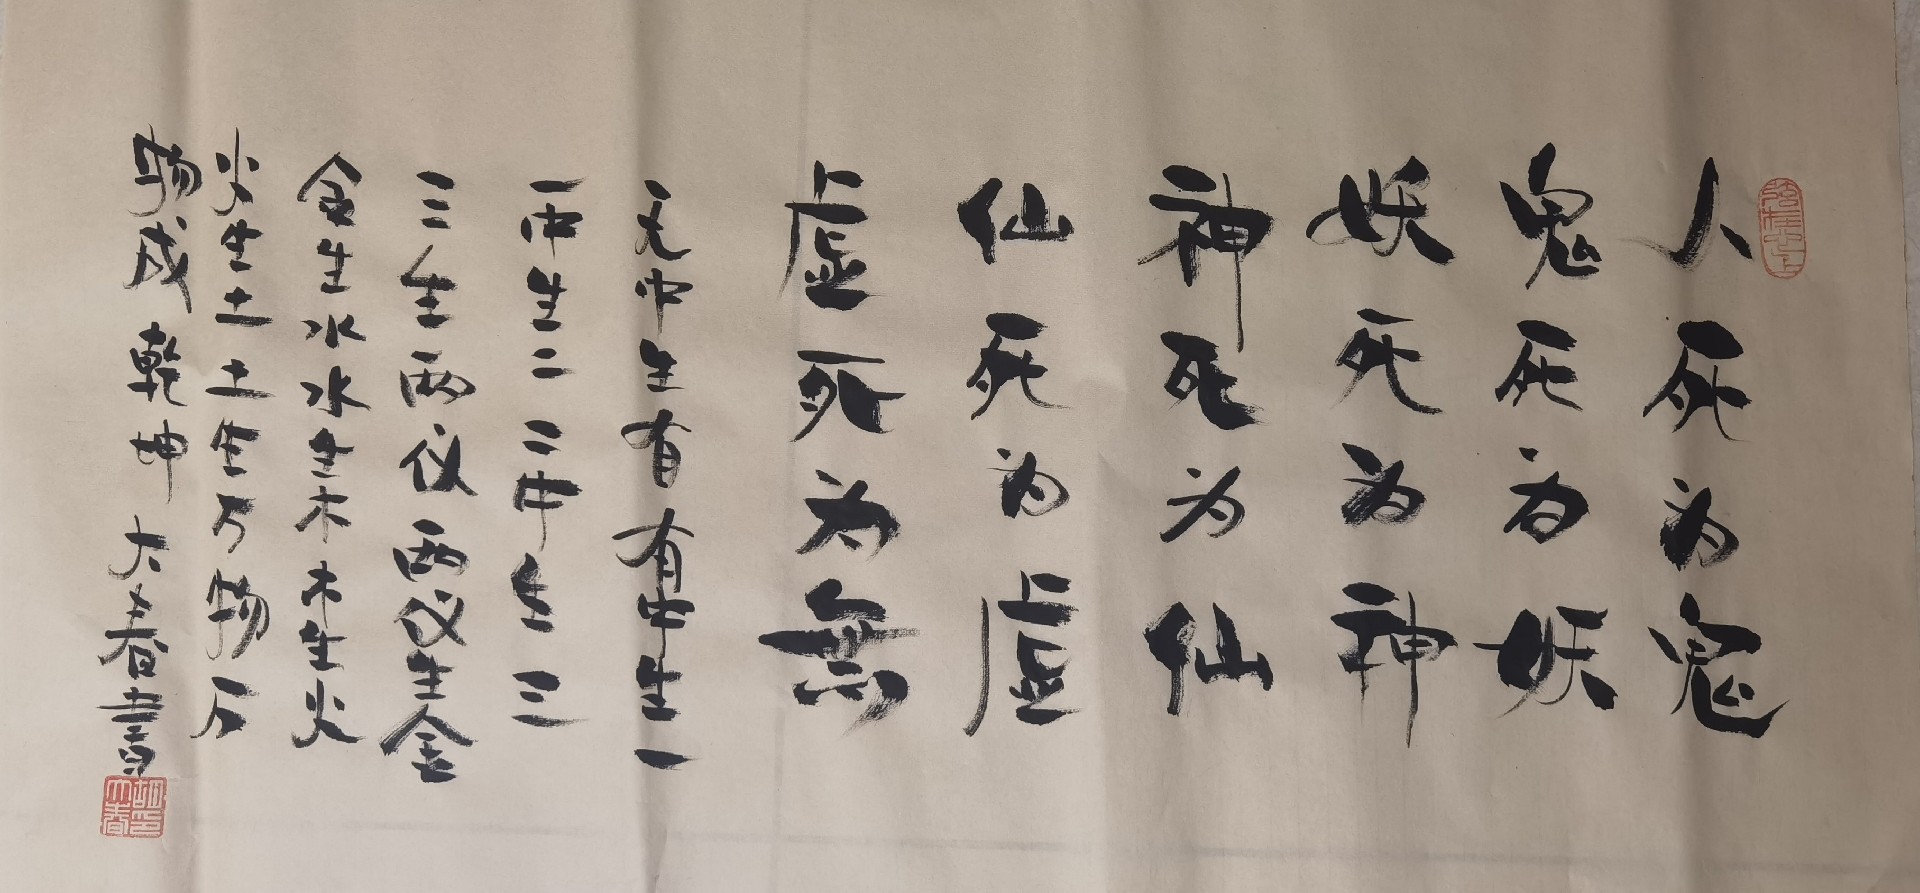 人死为鬼
鬼死为妖
妖死为神
神死为仙
仙死为虚
虚死为無
无中生有有中生一
一中生二二中生三
三生两仪两仪生金
金生水水生木木生火
火生土土生万物万
物成乾坤大春書